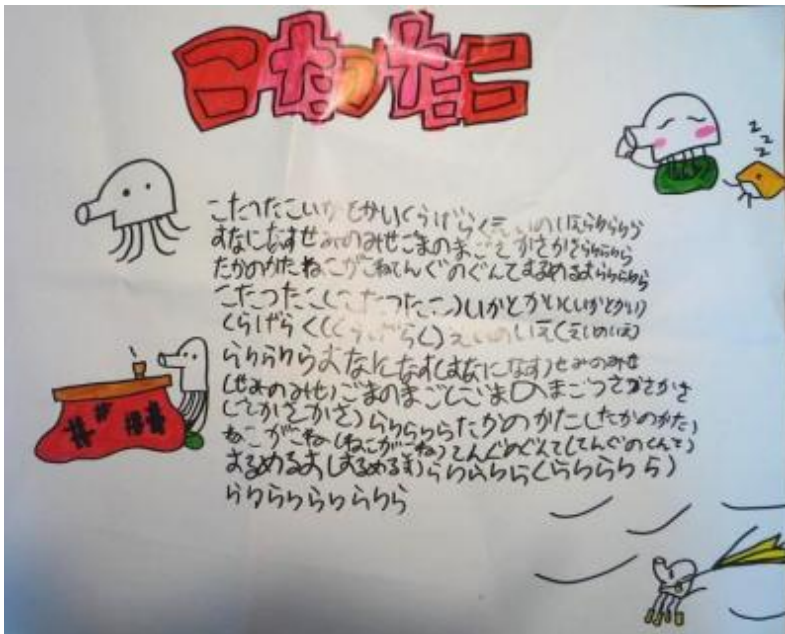 こたつたこ
z
z
z
こたつたこいかとかいくらげらくえいのいえらりらりら
すなになすせみのみせごまのまご かさかさらりらりら
たかのかたねこがこねてんぐのぐんてするめるすらりらりら
こたつたこ(こたつたこ)いかとかい(いかとかい)
くらげらく(くらげらく)えいのいえ(えいのいえ)
らりらりらすなになす(すなになす)せみのみせ
(せみのみせ)ごまのまご
かさかさ)らりらりらたかのかた(たかのかた)
ねこがこね(ねこがこね)てんぐのぐんて(てんぐのぐんて)
するめるす(するめるす)らりらりら(らりらりら)
らりらりらりらりら